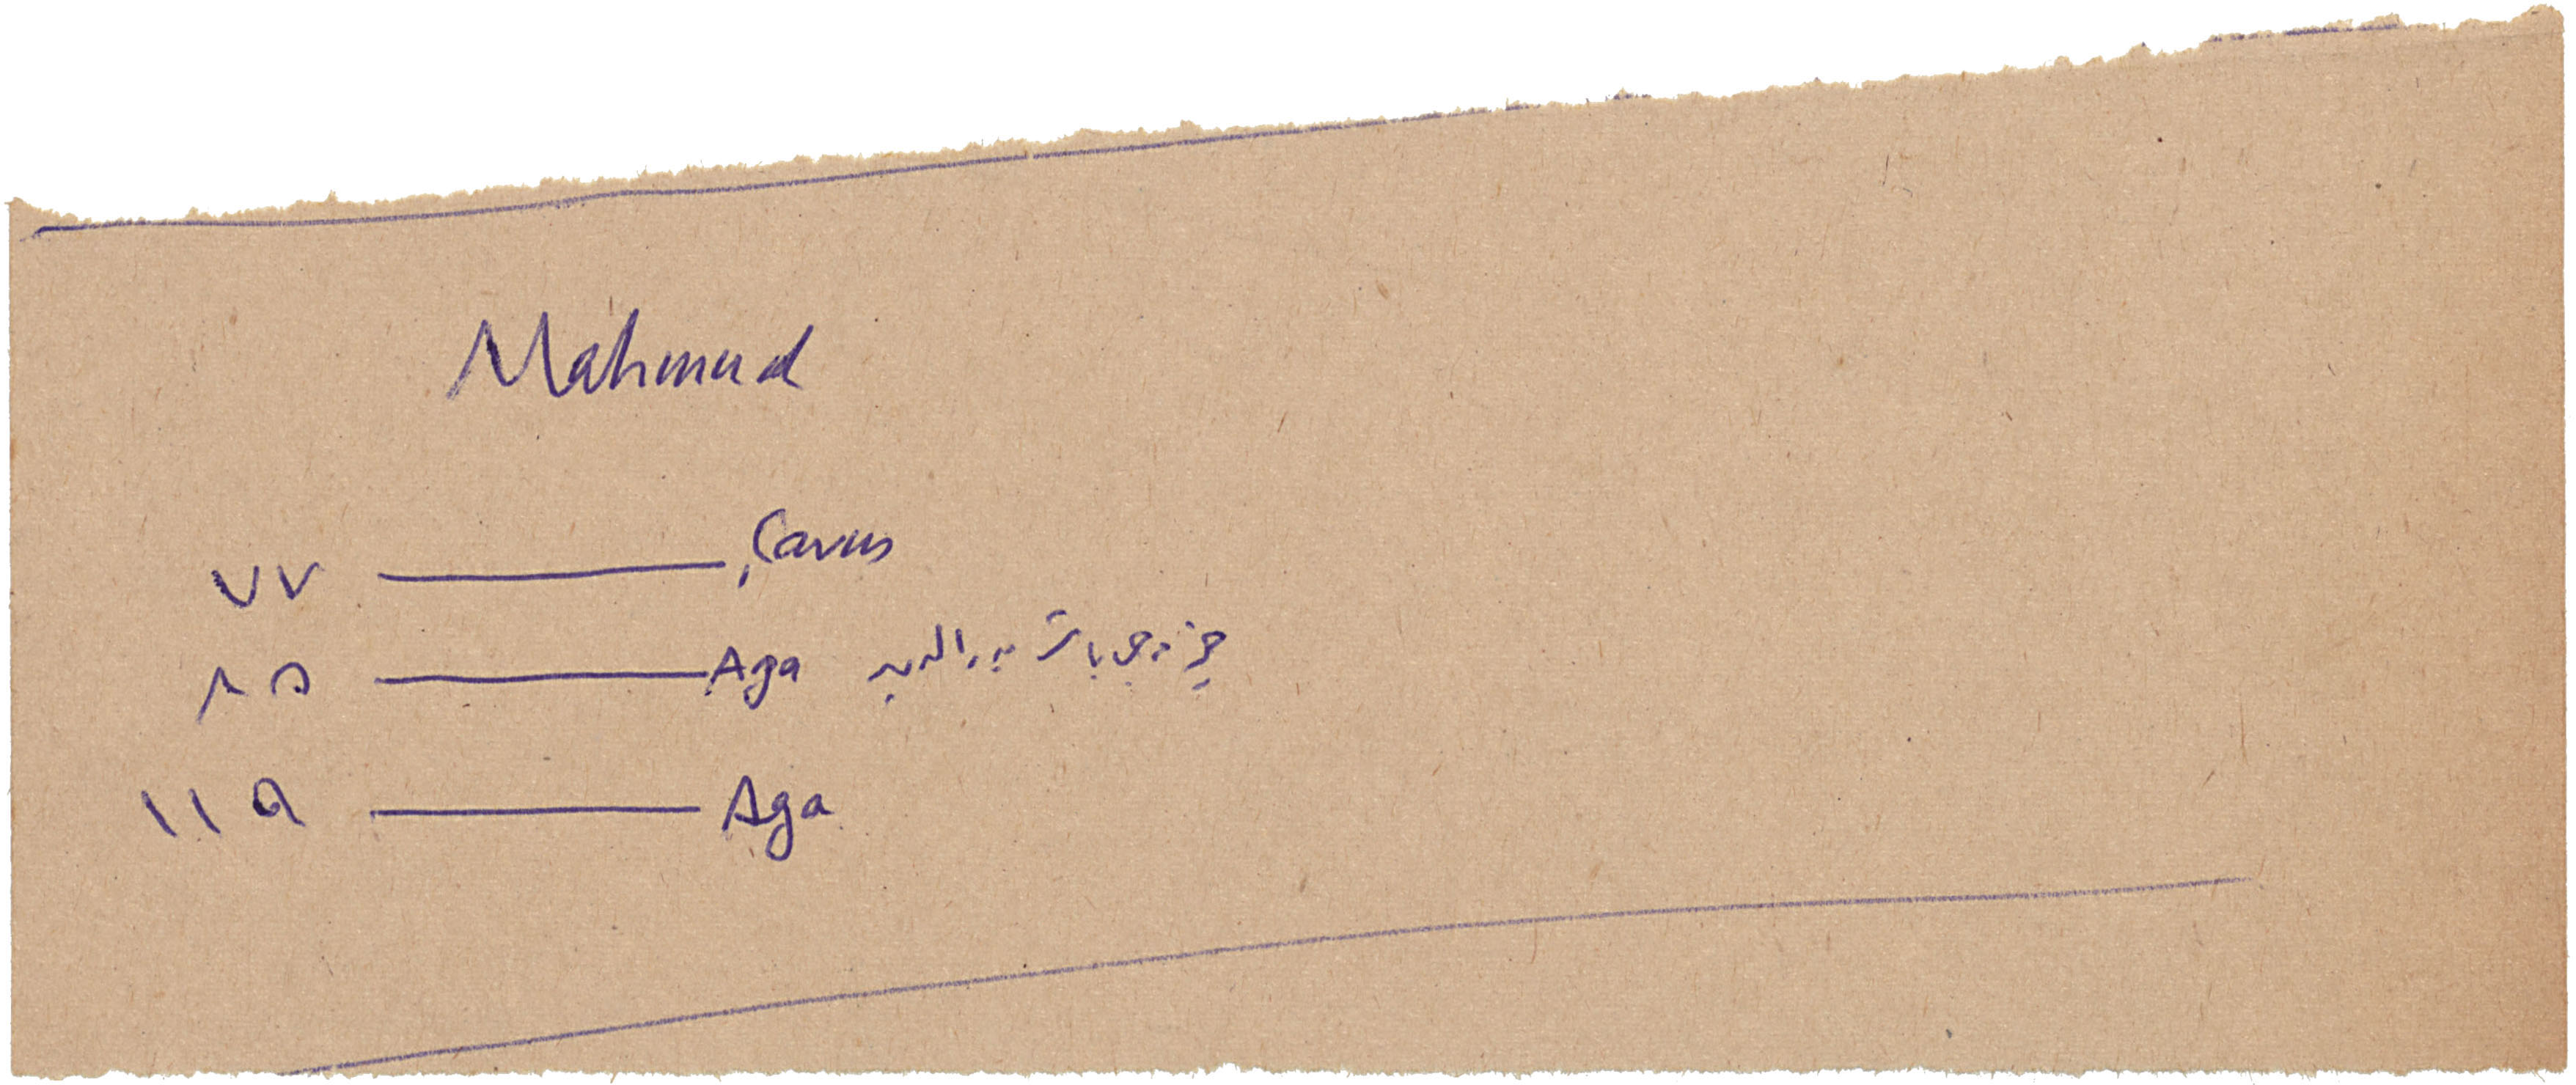 Mahmud
٧٧ — Çavus
٨٥ — Aga
١١٩ — Aga